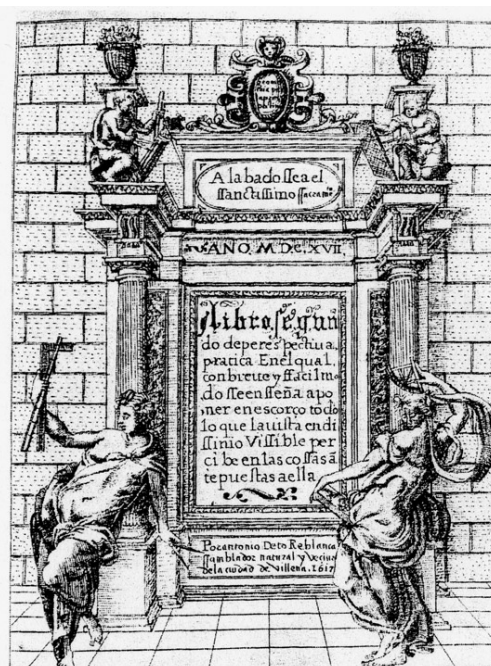 Alabado ssea el
ssanctissimo ssacramº
ANO. M.D.C.XVII.
Libro, segun
do deperespectiua,
pratica Enel qual,
conbreue y ffacil mo
do sseensseña apo
ner enescorço todo
lo que lauista endi
ssinio Vissible per
cibe enlas cossas ã
tepuestas aella
Por antonio De to Reblanca
ssamblador natural y Vecino
dela ciudad de Villena. 1617